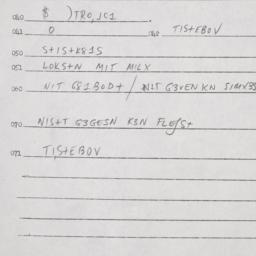 040 $ )TRO,JC1
041 0 042 TISTEBOV
050 S+IS+K81S
051 LOKS+N MIT MILX
060 NIT G81BOD+ / NLT G3VEN KN
070 NIS+T G3GESN K3N FLE/S+
071 TIS+EBOV